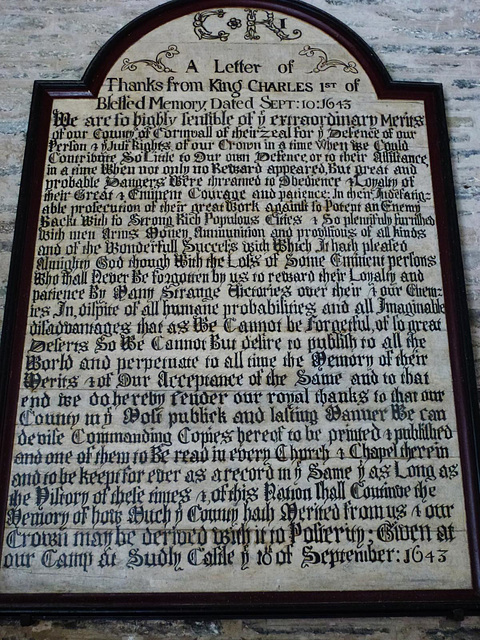 C R I
A Letter of
Thanks from King CHARLES 1ST of
Blessed Memory, Dated SEPT: 10: 1643
We are so highly sensible of ẏ extraordinary Merits
of our County of Cornwall of their Zeal for ẏ Defence of our
Person & ẏ Just Rights of our Crown in a time when We Could
Contribute So Little to Our own Defence or to their Assistance
in a time When not only no Reward appeared But great and
probable Dangers Were threatned to Obedience & Loyalty of
their Great & Eminent Courage and patience in their Indefatig=
able prosecution of their great Work against so Potent an Enemy
Backt With so Strong Rich Populous Cities & So plentifully furnished
with men Arms Money Ammunition and provisions of all kinds
and of the Wonderfull Success with Which It hath pleased
Almighty God though With the Loss of Some Eminent persons
Who shall Never Be forgotten by us to reward their Loyalty and
patience By Many Strange Victories over their & our Enem=
ies In dispite of all humane probabilities and all Imaginable
disadvantages that as We Cannot be forgetful of so great
Deserts So We Cannot But desire to publish to all the
World and perpetuate to all time the Memory of their
Merits & of Our Acceptance of the Same and to that
end we do hereby tender our royal thanks to that our
County in ẏ Most publick and lasting Manner We can
devise Commanding Copies hereof to be printed & published
and one of them to Be read in every Church & Chapel therein
and to be keept for ever as a record in ẏ Same ẏ as Long as
the History of these times & of this Nation shall Continue the
Memory of how Much ẏ County hath Merited from us & our
Crown may be derived with it to Posterity: Given at
our Camp at Sudly Castle ẏ 10 of September: 1643